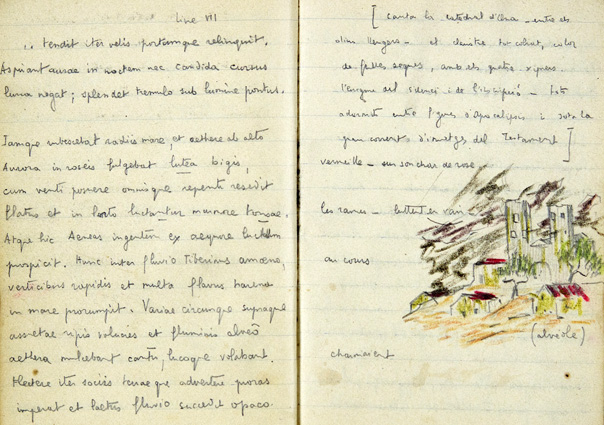 Livre VII
.. tendit iter velis portumque relinquit.
Aspirant aurae in noctem nec candida cursus
luna negat; splendet tremulo sub lumine pontus.
Iamque rubescebat radiis mare, et aethere ab alto
Aurora in roseis fulgebat lutea bigis,
cum venti posuere omnisque repente resedit
flatus et in lento luctantur marmore tonsae.
Atque hic Aeneas ingentem ex aequore lucum
prospicit. Hunc inter fluvio Tiberinus amoeno,
verticibus rapidis et multa flavus harena
in mare prorumpit. Variae circumque supraque
assuetae ripis volucres et fluminis alveo
aethera mulcebant cantu, lucoque volabant.
Flectere iter sociis terraeque advertere proras
imperat et laetus fluvio succedit opaco.
[ cantar la entre els
- et claustre color
de fulles seques, amb els quatre
l'angue del silenci i de - tots
entre figures d'Apocalipsi i sota la
gran d'imatges del Testament ]
vermeille - sur son char de rose
les rames - luttent en vain -
au cours
(alvéole)
charmaient